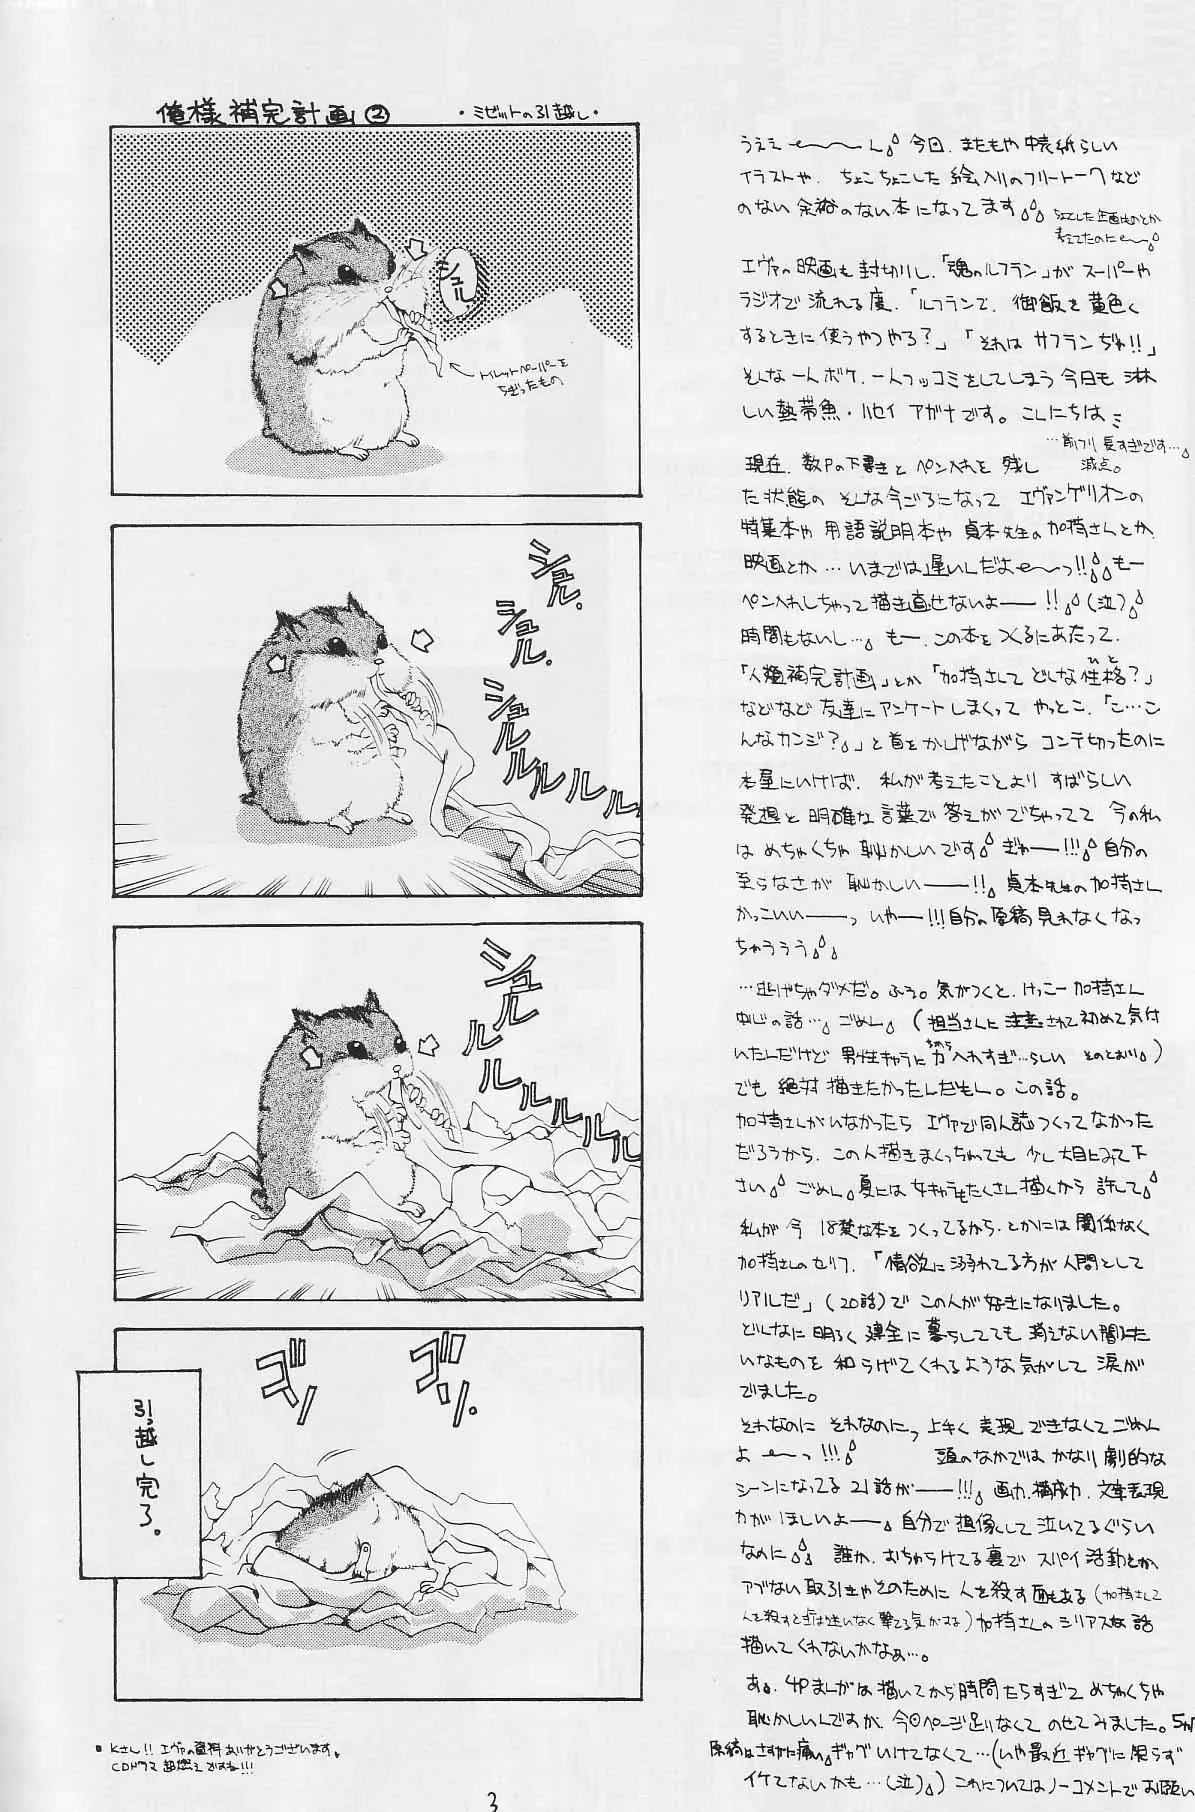 俺様補完計画②
・ミゼットの引越し・
シュル
トイレットペーパーを
ちぎったもの
シュル。
シュル。
シュルルルルル
シュルルルルルルル
ゴソ
ゴソ。
引っ越し完了。
■Kさん!! エヴァの資料ありがとうございます。
CDドラマ 超燃えですね!!!
3
うええ〜〜ん 今回、またもや中表紙らしい
イラストや、ちょこちょこした絵入りのフリートークなど
のない余裕のない本になってます
考えてたのに〜
エヴァの映画も封切りし、「魂のルフラン」がスーパーや
ラジオで流れる度、「ルフランて、御飯を黄色く
するときに使うやつやろ?」「それはサフランぢゃ!!」
そんな一人ボケ、一人ツッコミをしてしまう今日も淋
しい熱帯魚・ハセイアガナです。こんにちは
…前フリ長すぎです…
減点。
現在、数Pの下書きとペン入れを残し
た状態のそんな今ごろになってエヴァンゲリオンの
特集本や用語説明本や貞本先生の加持さんとか、
映画とか…いまでは遅いんだよ〜〜っ!! もー
ペン入れしちゃって描き直せないよ――!!(泣)
時間もないし…。もー、この本をつくるにあたって、
「人類補完計画」とか「加持さんてどんな性格(ひと)?」
などなど友達にアンケートしまくってやっとこ、「こ…こ
んなカンジ?」と首をかしげながらコンテ切ったのに
本屋にいけば、私が考えたことよりすばらしい
発想と明確な言葉で答えがでちゃってて今の私
はめちゃくちゃ恥かしいです ぎゃー!!! 自分の
至らなさが恥かしい――!! 貞本先生の加持さん
かっこいい――っ いやー!!! 自分の原稿見れなくなっ
ちゃううう
…逃げちゃダメだ。ふう。気がつくと、けっこー加持さん
中心の話…。ごめん。(担当さんに注意されて初めて気付
いたんだけど男性キャラに力(ちから)入れすぎ…らしい そのとおり)
でも絶対描きたかったんだもん。この話。
加持さんがいなかったらエヴァで同人誌つくってなかった
だろうから、この人描きまくっちゃても少し大目にみて下
さい ごめん 夏には女キャラもたくさん描くから許して
私が今18禁な本をつくってるから、とかには関係なく
加持さんのセリフ、「情欲に溺れてる方が人間として
リアルだ」(20話)でこの人が好きになりました。
どんなに明るく健全に暮らしてても消えない闇みた
いなものを和らげてくれるような気がして涙が
でました。
それなのにそれなのにっ上手く表現できなくてごめん
よ〜〜っ!!! 頭のなかではかなり劇的な
シーンになってる21話が――!!! 画力、構成力、文章表現
力がほしいよ――自分で想像して泣いてるぐらい
なのに 誰か、おちゃらけてる裏でスパイ活動とか
アブない取引きやそのために人を殺す面もある(加持さんて
人を殺すときは迷いなく撃てる気がする)加持さんのシリアスな話
描いてくれないかなぁ…。
あ、4Pまんがは描いてから時間たちすぎてめちゃくちゃ
恥かしいんですが、今回ページ足りなくてのせてみました。5ヶ月
原稿はさすがに痛い ギャグいけてなくて…(いや最近ギャグに限らず
イケてないかも…(泣)) これについてはノーコメントでお願い